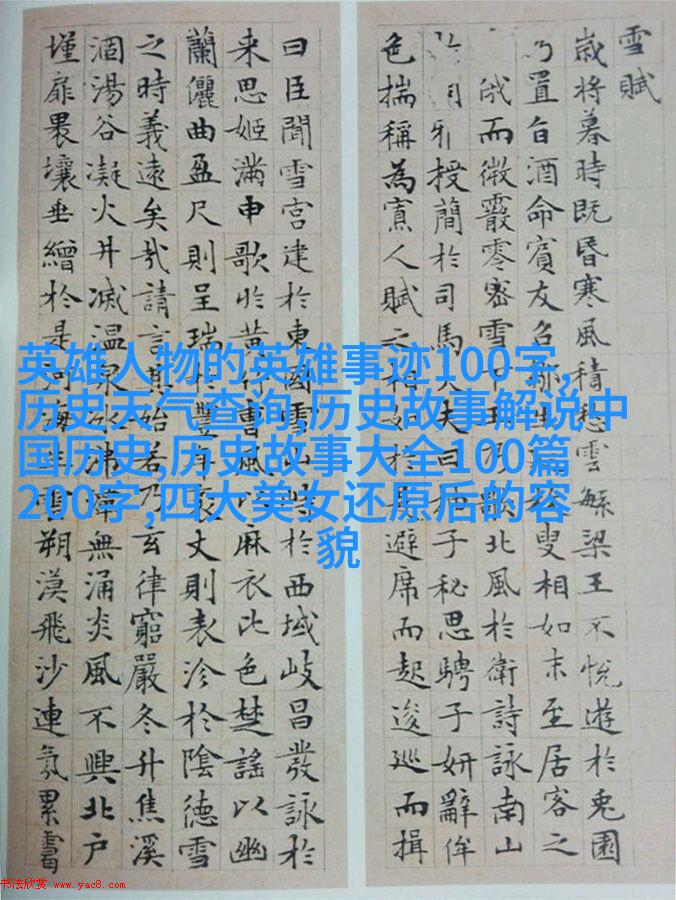 雪賦
歲將暮時既昏寒風積愁雲繁梁王不悅遊於兔園
乃置旨酒命賓友召鄒生延枚叟相如末至居客之
俄而微霰零密雪下王乃歌北風於衛詩詠南山
授簡於司馬大夫曰抽子秘思騁子妍辭侔
色揣稱為寡人賦之相如於是避席而起逡巡而揖
曰臣聞雪宮建於東國雪山峙於西域岐昌發詠於
来思姬滿申歌於黃竹曹風以麻衣比色楚謠以幽
蘭儷曲盈尺則呈瑞於豐年袤丈則表沴於陰德雪
之時義遠矣哉請言其始若乃玄律窮嚴冬升焦溪
涸湯谷凝火井滅溫泉冰沸潭無涌炎風不興北户
墐扉裸壤垂繒於是河海生雲朔漠飛沙連氛累霭
英雄人物的英雄事迹100字,
历史天气查询,历史故事解说中
国历史,历史故事大全100篇
200字,四大美女还原后的容
貌
书法欣赏 www.yac8.com